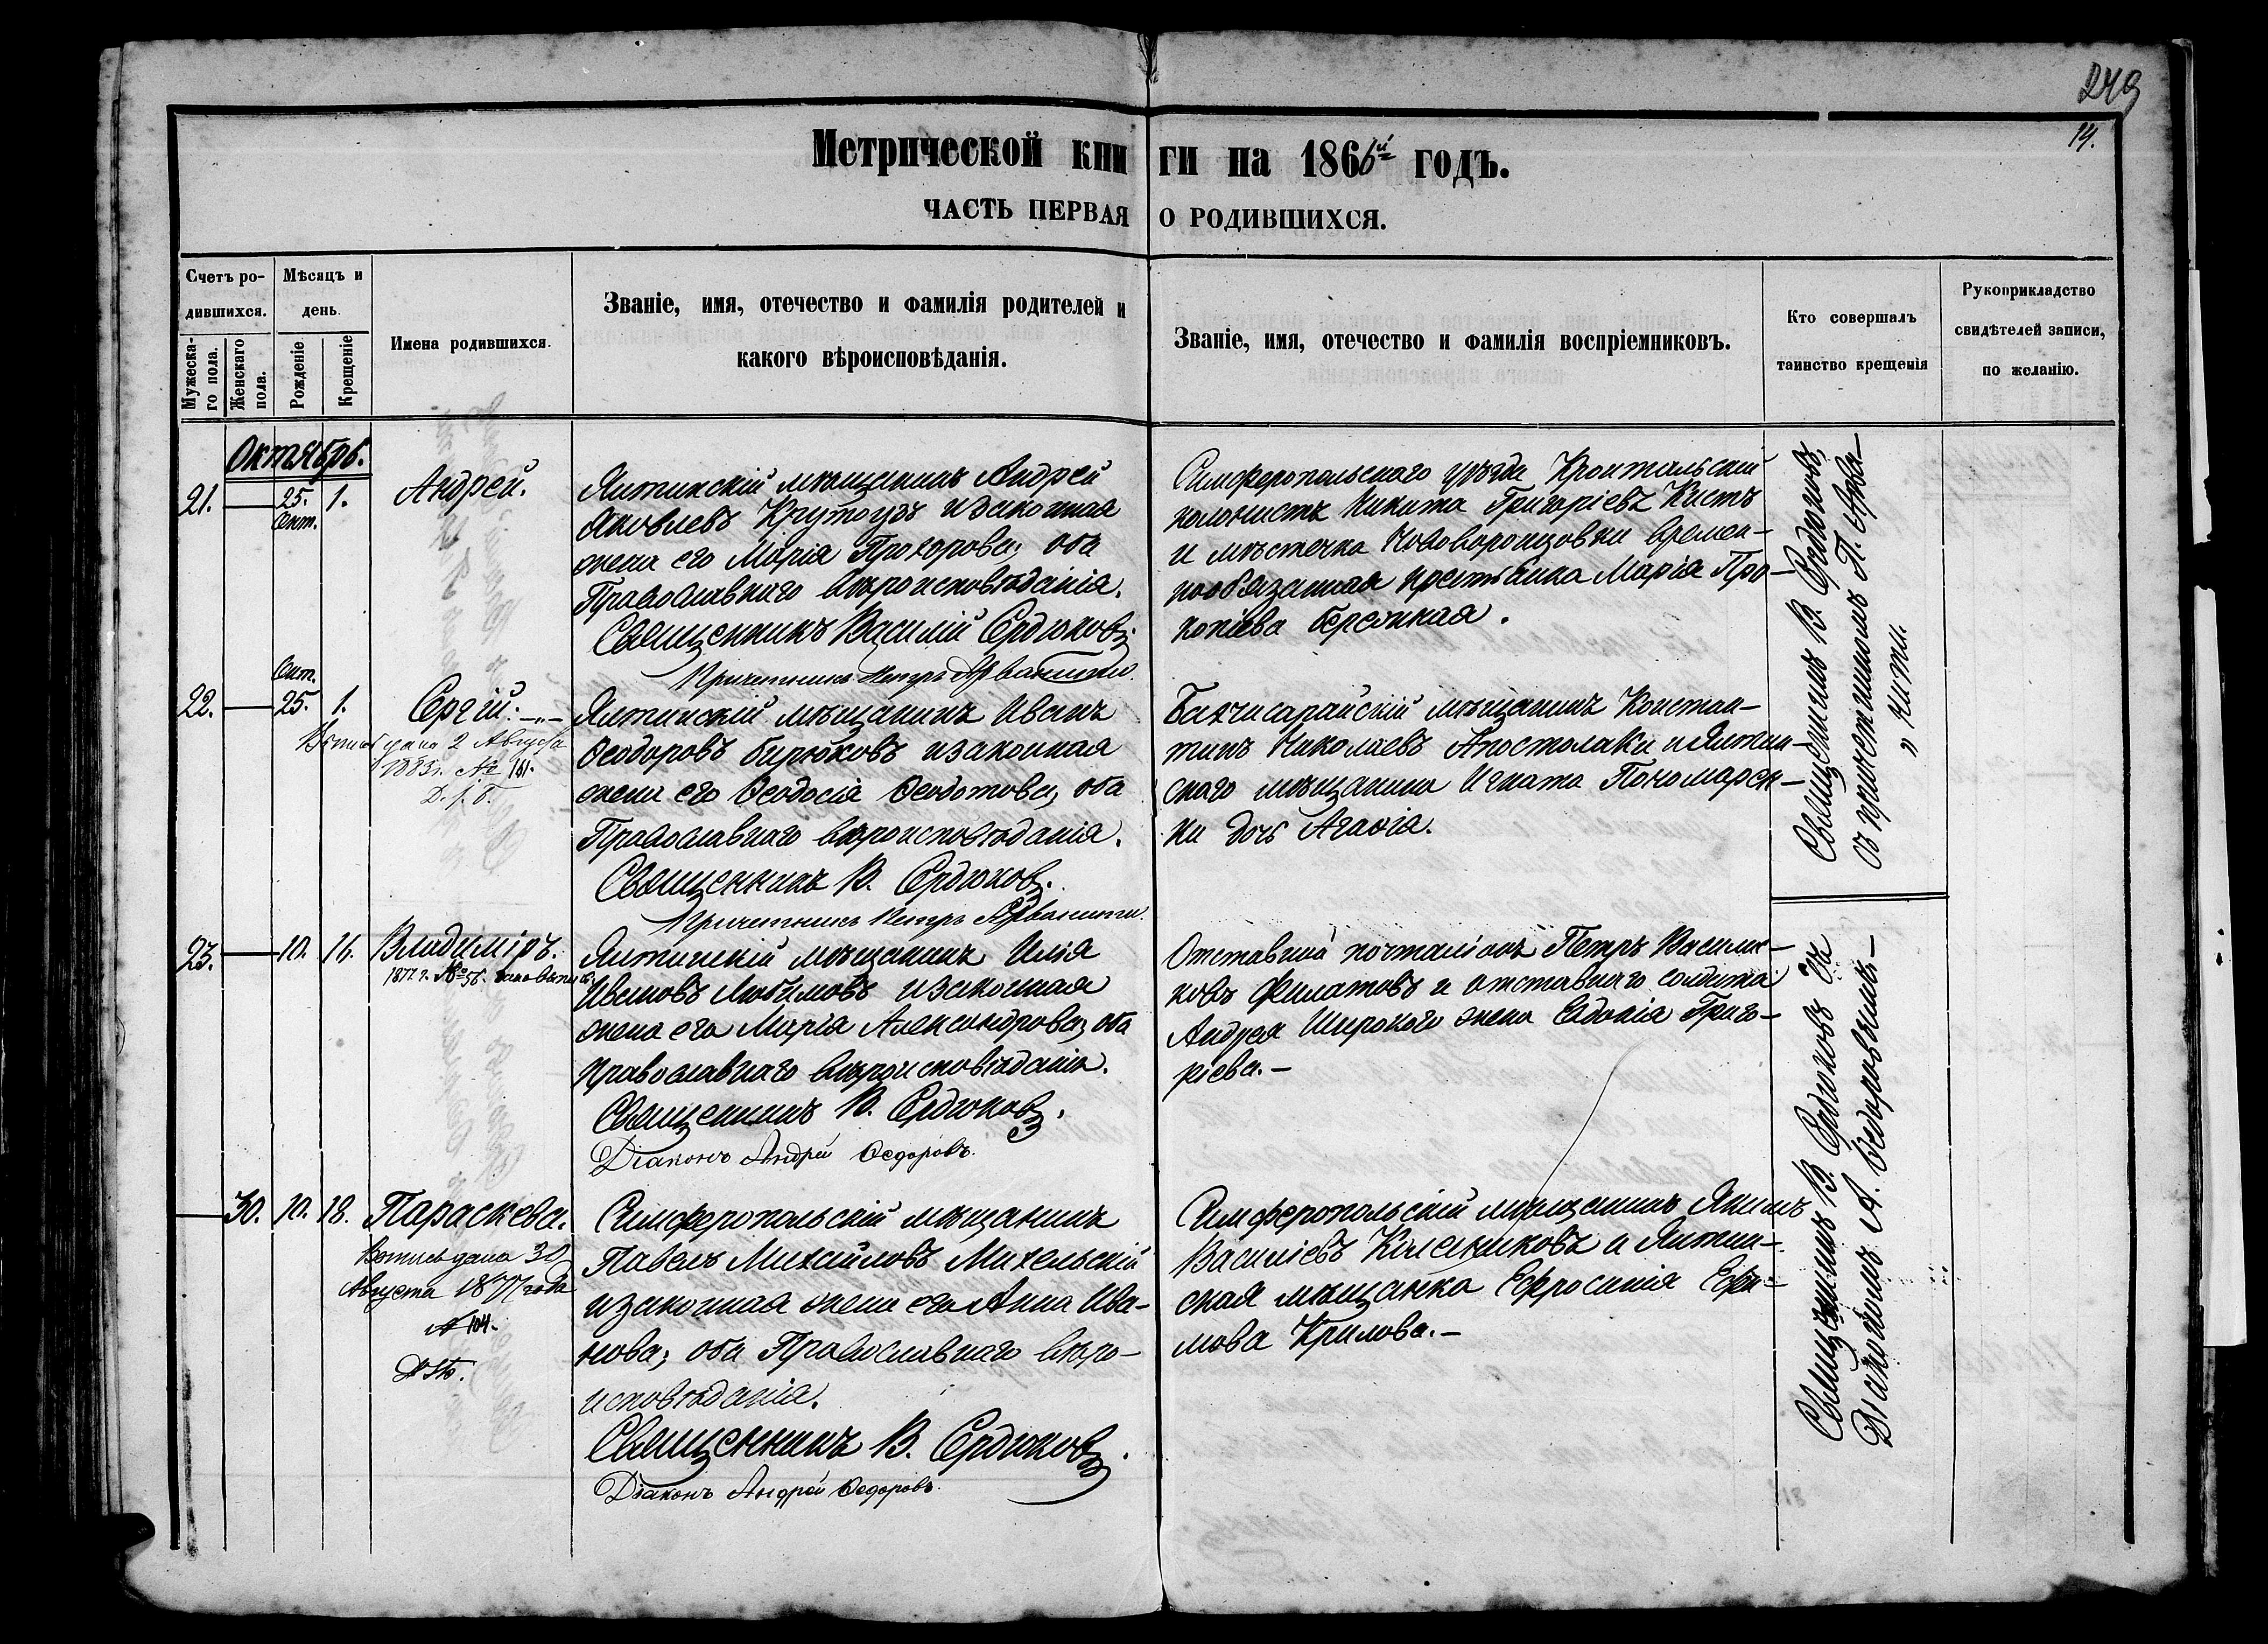 249
14.
Метрической книги на 1866й годъ.
ЧАСТЬ ПЕРВАЯ О РОДИВШИХСЯ.
Счетъ ро-
дившихся.
Мужеска-
го пола.
Женскаго
пола.
Мѣсяцъ и
день.
Рожденіе.
Крещеніе.
Имена родившихся.
Званіе, имя, отечество и фамилія родителей и
какого вѣроисповѣданія.
Званіе, имя, отечество и фамилія воспріемниковъ.
Кто совершалъ
таинство крещенія
Рукоприкладство
свидѣтелей записи,
по желанію.
Октябрь.
21. — 25. 1.
Окт.
Андрей.
Ялтинскій мѣщанинъ Андрей
Яковлевъ Крутоузъ и законная
жена его Марія Прохорова; оба
Православнаго вѣроисповѣданія.
Священникъ Василій Сердюковъ.
Причетникъ Петръ Арванити.
Симферопольскаго уѣзда Кронтальскій
колонистъ Никита Григоріевъ Кистъ
и мѣстечка Нововоронцовки времен-
нообязанная крестьянка Марія Про-
копіева Бережная.
Окт.
22. — 25. 1.
Сергій. —„—
Вѣтись дана 2 Августа
1883г. № 161.
Ялтинскій мѣщанинъ Иванъ
Ѳеодоровъ Бирюковъ и законная
жена его Ѳеодосія Ѳеодотова; оба
Православнаго вѣроисповѣданія.
Священникъ В. Сердюковъ.
Причетникъ Петръ Арванити.
Бахчисарайскій мѣщанинъ Констан-
тинъ Николаевъ Апостолаки и Ялтин-
скаго мѣщанина Игната Пономарен-
ки дочь Агафія.
Священникъ В. Сердюковъ,
съ причетникомъ П. Арва-
„ нити.
23. — 10. 16.
Владиміръ.
1877 г. № 56.
Ялтинскій мѣщанинъ Илія
Ивановъ Любимовъ и законная
жена его Марія Александрова; оба
Православнаго вѣроисповѣданія.
Священникъ В. Сердюковъ.
Діаконъ Андрей Ѳедоровъ.
Отставной почталіонъ Петръ Василь-
ковъ Филатовъ и отставнаго солдата
Андрея Широкого жена Евдокія Григо-
ріева. —
— 30. 10. 18.
Параскева.
Вѣтись дана 30
Августа 1877 года
№ 104.
Симферопольскій мѣщанинъ
Павелъ Михайловъ Михельскій
и законная жена его Анна Ива-
нова; оба Православнаго вѣро-
исповѣданія.
Священникъ В. Сердюковъ.
Діаконъ Андрей Ѳедоровъ.
Симферопольскій мѣщанинъ Якимъ
Василіевъ Колесниковъ и Ялтин-
ская мѣщанка Ефросинія Ефи-
мова Крилова. —
Священникъ В. Сердюковъ съ
Діакономъ А. Ѳедоровымъ. —